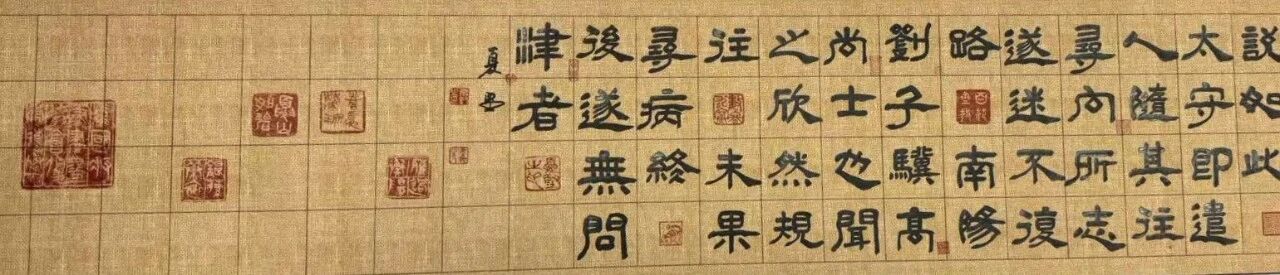 說如此
太守即遣
人隨其往
尋向所志
遂迷不復
路南陽
劉子驥高
尚士也聞
之欣然規
往未果
尋病終
後遂無問
津者
夏